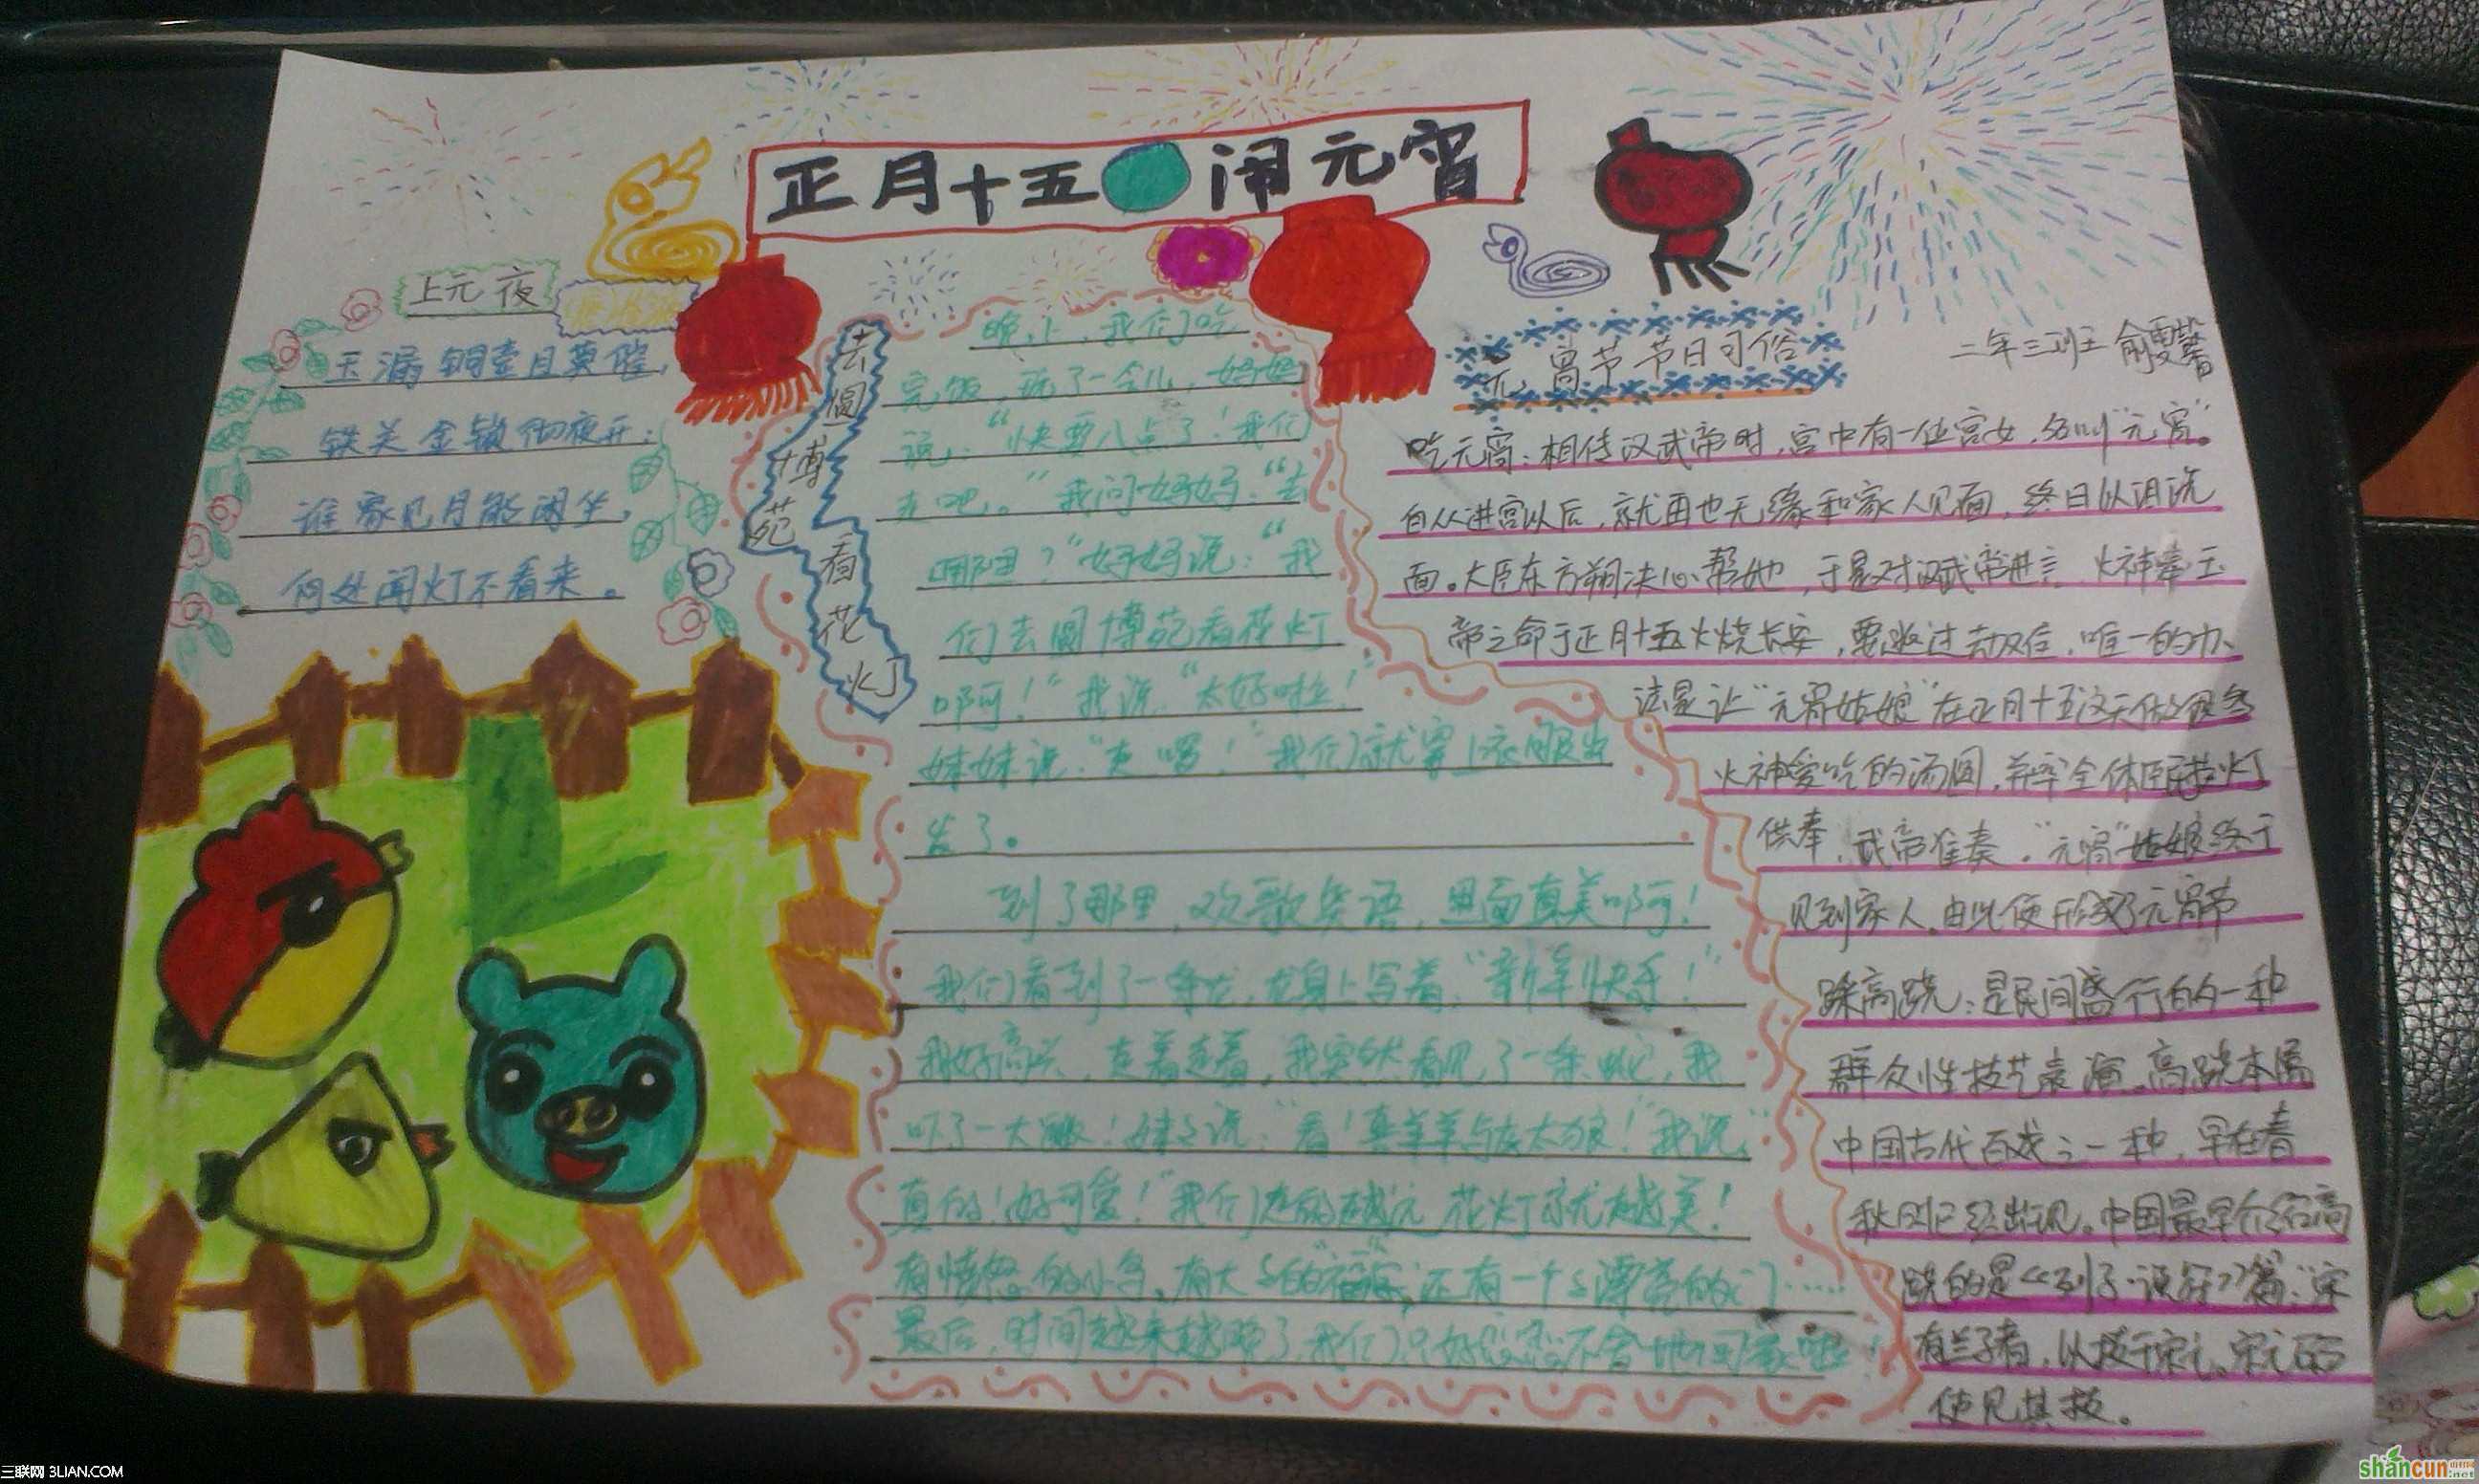 正月十五 闹元宵
上元夜
玉漏铜壶且莫催,
铁关金锁彻夜开;
谁家见月能闲坐,
何处闻灯不看来。
去圆博苑看花灯
晚上,我们吃
完饭,玩了一会儿,妈妈
说:“快要八点了!我们
走吧。”我问妈妈:“去
哪里?”妈妈说:“我
们去圆博苑看花灯
啊!”我说:“太好啦!”
妹妹说:“走啰!”我们就穿上衣服出
发了。
到了那里,欢歌笑语,里面真美啊!
我们看到了一条龙,龙身上写着:“新年快乐!”
我好高兴,走着走着,我突然看见了一条蛇,我
吓了一大跳!妹妹说:“看!喜羊羊与灰太狼!”我说:“
真的!好可爱!”我们走的越远,花灯就越美!
有愤怒的小鸟,有大大的“福”,还有一个个漂亮的门……
最后,时间越来越晚了,我们只好恋恋不舍地回家啦!
二年三班 俞雯馨
元宵节节日习俗
吃元宵:相传汉武帝时,宫中有一位宫女,名叫“元宵”。
自从进宫以后,就再也无缘和家人见面,终日以泪洗
面。大臣东方朔决心帮她,于是对汉武帝进言,火神奉玉
帝之命于正月十五火烧长安,要逃过劫后,唯一的办
法是让“元宵姑娘”在正月十五这天做很多
火神爱吃的汤圆,并率全体臣民挂灯
供奉,武帝准奏。“元宵”姑娘终于
见到家人。由此便形成了元宵节
踩高跷:是民间盛行的一种
群众性技艺表演,高跷本属
中国古代百戏之一种,早在春
秋时已经出现。中国最早介绍高
跷的是《列子·说符》篇:“宋
有兰子者,以技干宋元。宋元召
使见其技。
三联网 3LIAN.COM
shancun